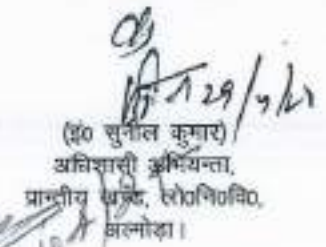 29/
(इं० सुनील कुमार)
अधिशासी अभियन्ता,
प्रान्तीय खण्ड, लो०नि०वि०,
अल्मोड़ा।